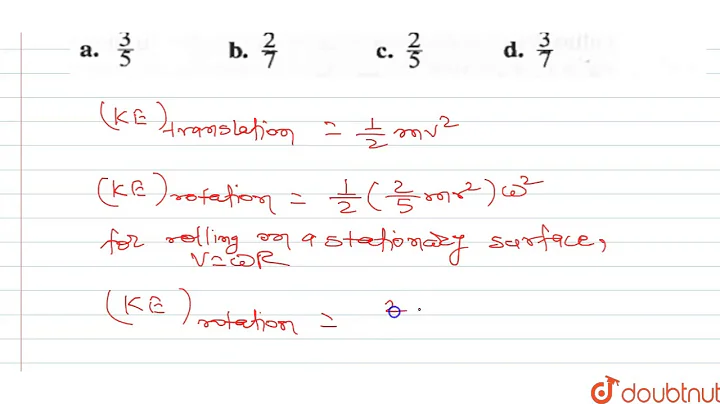 a. 3/5 b. 2/7 c. 2/5 d. 3/7
(KE)translation = 1/2 mv²
(KE)rotation = 1/2 (2/5 mr²) ω²
for rolling on a stationary surface,
v=ωR
(KE)rotation =
doubtnut